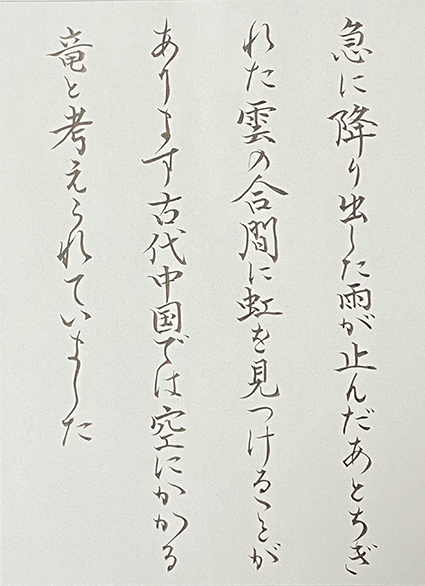 急に降り出した雨が止んだあとちぎ
れた雲の合間に虹を見つけることが
あります古代中国では空にかかる
竜と考えられていました